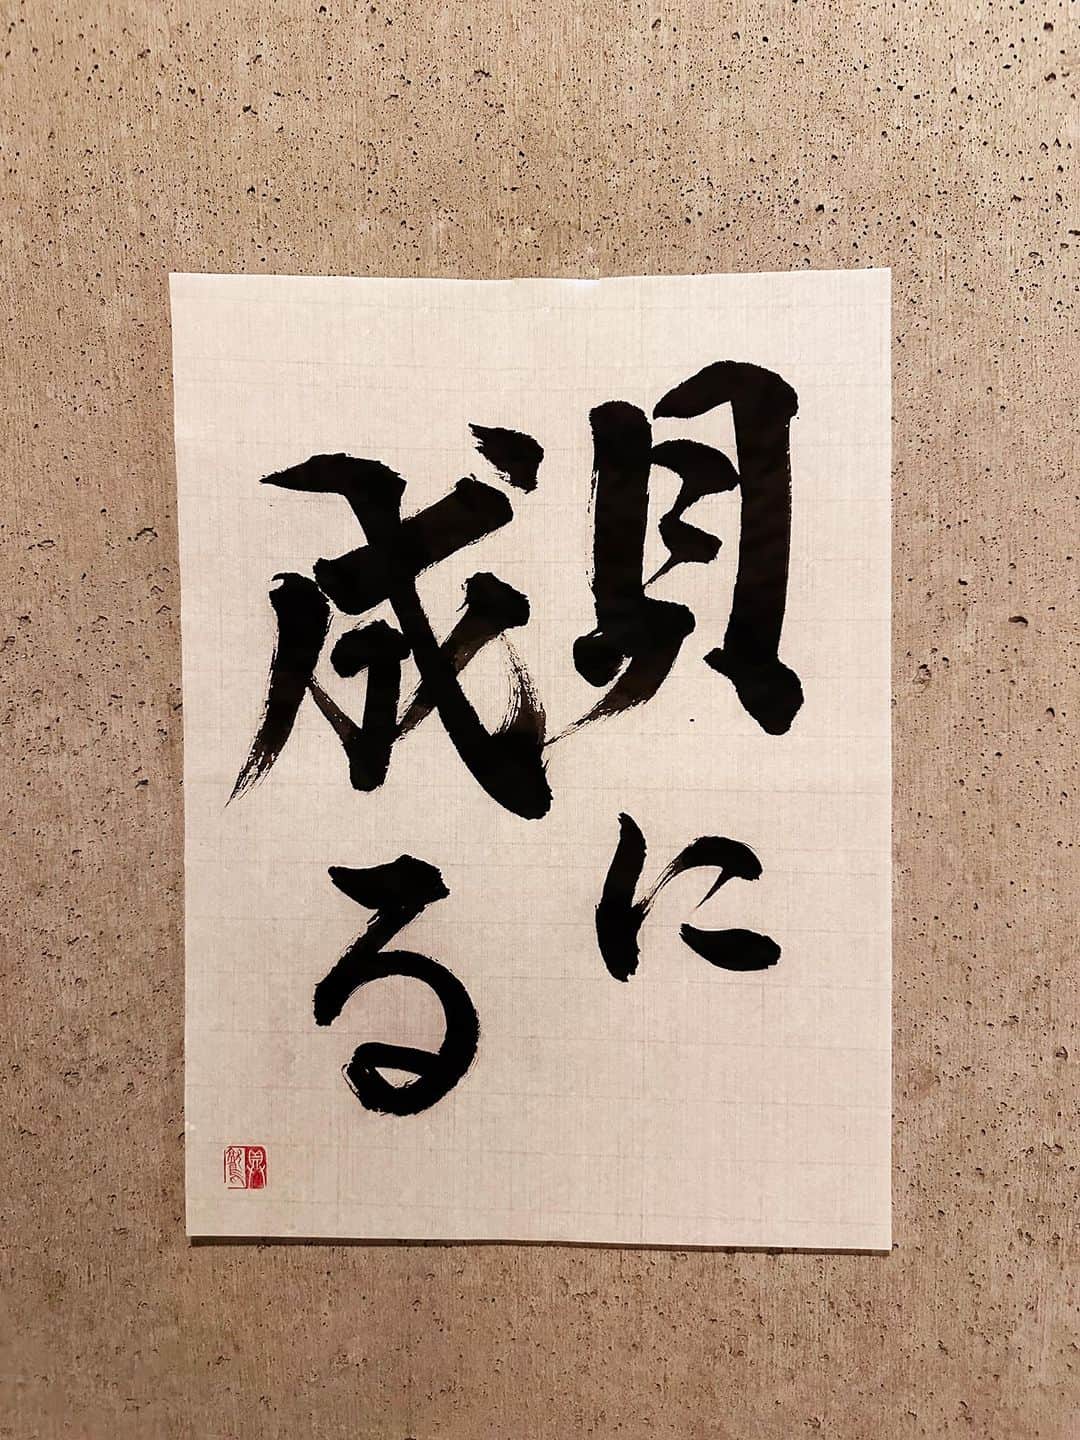 貝に
成る